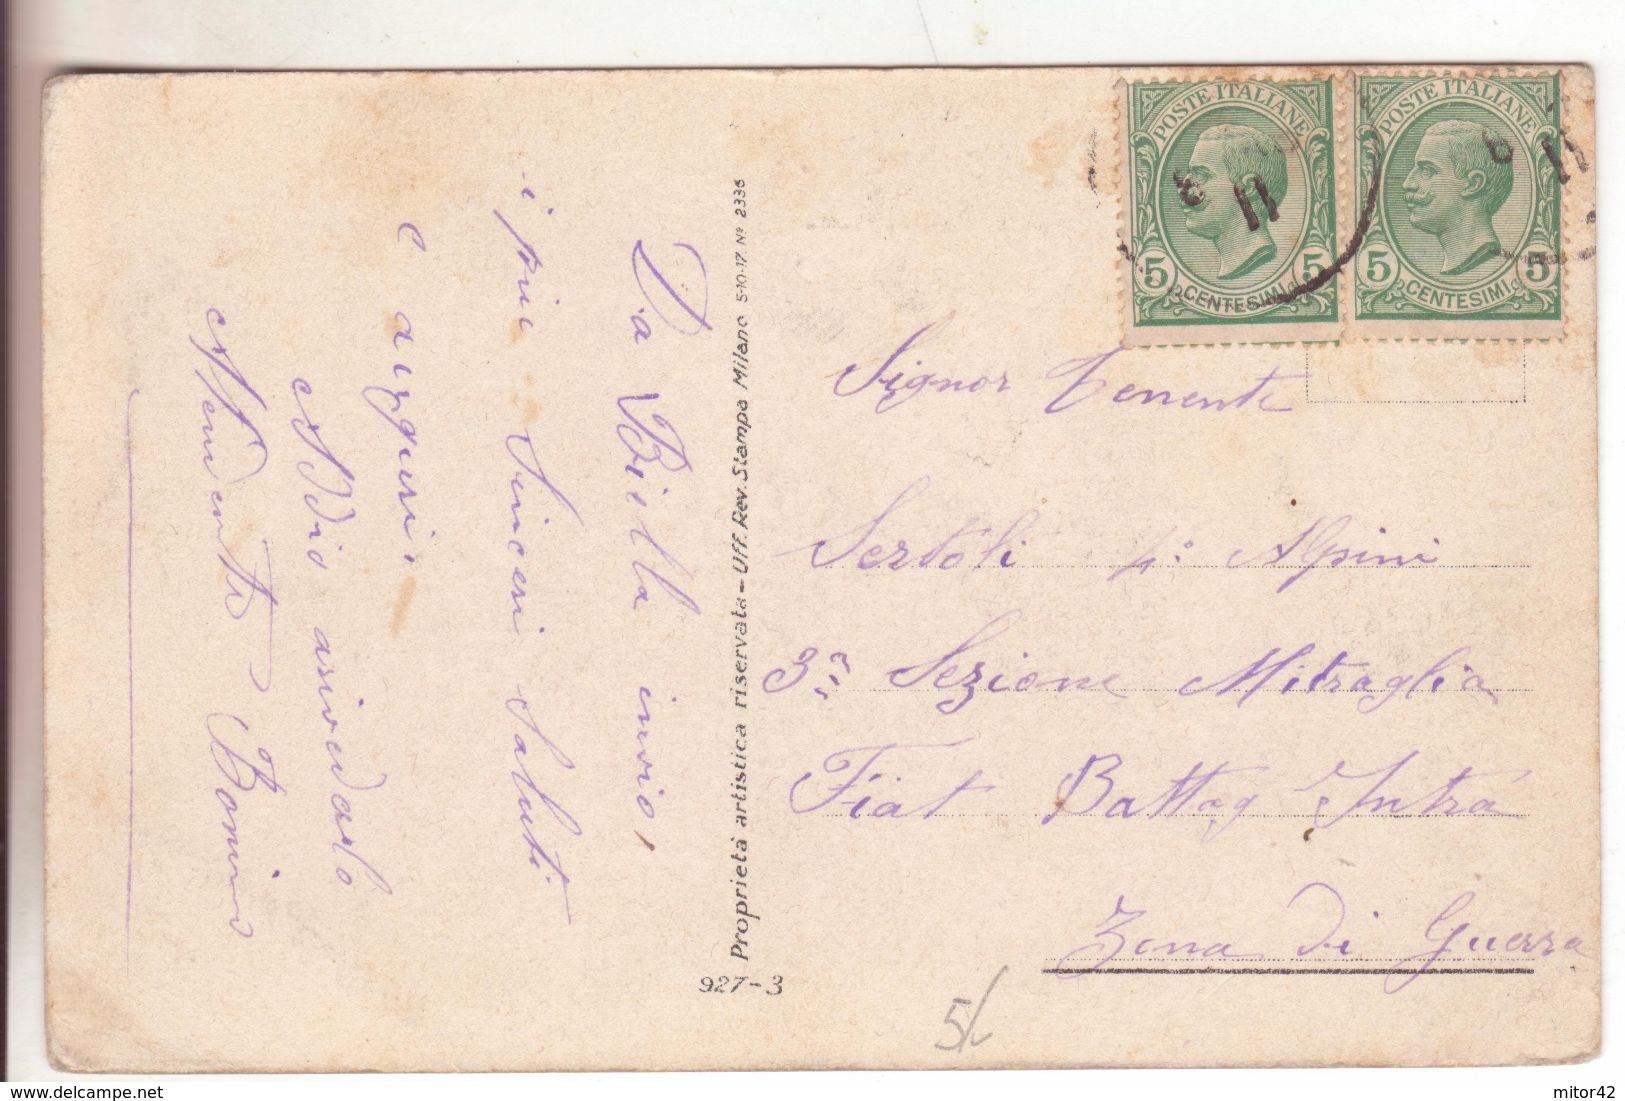 Da Biella invio,
i più sinceri saluti
e auguri.
Addio arivederlo
Attendente Bonino
Proprietà artistica riservata - Uff. Rev. Stampa Milano 5-10-17 Nº 2336
927-3
POSTE ITALIANE
5 CENTESIMI 5
POSTE ITALIANE
5 CENTESIMI 5
Signor Tenente
Sertoli 4º Alpini
3ª Sezione Mitraglia
Fiat Battag Intra
Zona di Guerra
mitor42